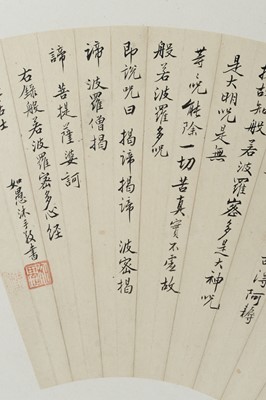 得阿耨
故知般若波羅密多是大神咒
是大明咒是無
等〻咒能除一切苦真實不虛故
般若波羅多咒
即說咒曰 揭諦揭諦 波密揭
諦 波羅僧揭
諦 菩提薩婆訶
右錄般若波羅密多心經
居士
如愚沐手敬書